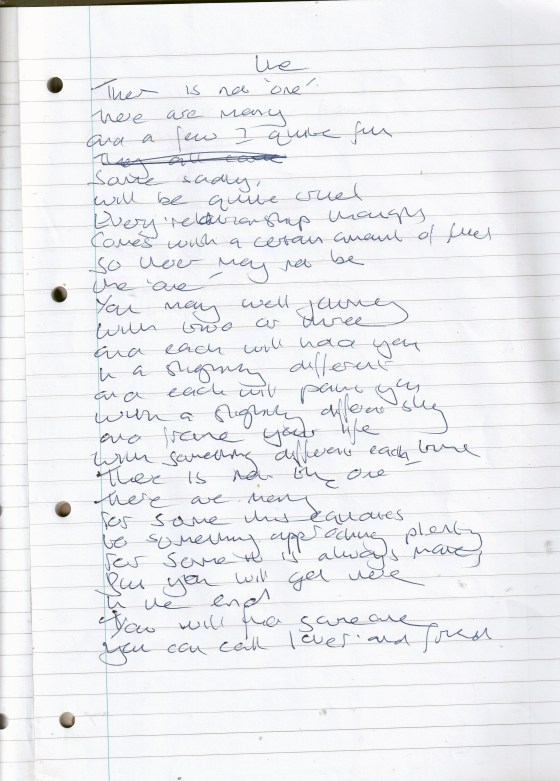 The
There is not 'one'
there are many
and a few I quite fun
They all come
Some sadly,
will be quite cruel
Every relationship though
Comes with a certain amount of fuel
So there may not be
the 'one'
You may well journey
with two or three
and each will hold you
in a slightly different
and each will paint you
with a slightly different sky
and frame your life
with something different each time
There is not the one
there are many
for some this equates
to something approaching plenty
for some it is always
But you will get there
in the end
You will find someone
you can call lover and friend